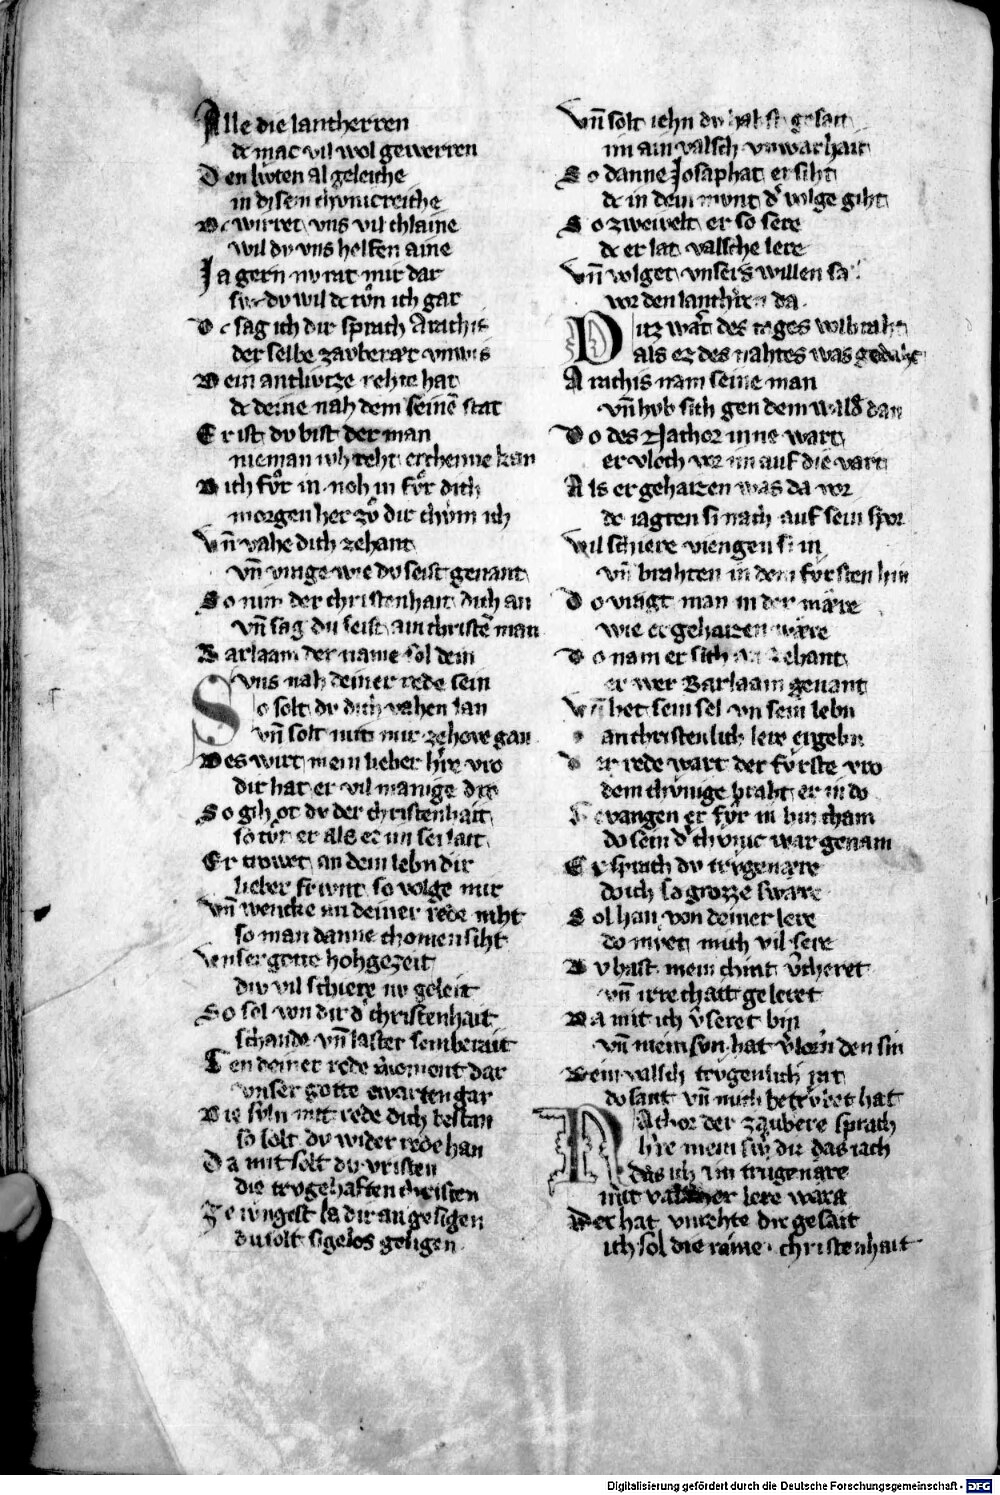 Alle die lantherren
dc mac vil wol gewerren
Den livten al geleiche
in disem chvnicreiche
Dc wirret vns vil chlaine
wil dv vns helfen aine
Ja gern nv rat mir dar
swc dv wil dc tvͦn ich gar
Dc sag ich dir sprach Arachis
der selbe zavberær vnwis
Dein antlvtze rehte hat
dc deine nah dem seinē stat
Er ist dv bist der man
nieman iwh reht erchenne kan
Dich fvͤr in noh in fvͤr dich
morgen her zvͦ dir chvm ich
Vn̄ vahe dich zehant
vn̄ vrage wie dv seist genant
So nim der christenhait dich an
vn̄ sag du seist ain christē man
Barlaam der name sol dein
Svns nah deiner rede sein
So solt dv dich vahen lan
vn̄ solt mit mir ze hove gan
Des wirt mein lieber h're vro
dir hat er vil manige dro
So gih ot dv der christenhait
so tvͦt er als ez im sei lait
Er trowet an dem lebn dir
lieber frivnt so volge mir
Vn̄ wencke an deiner rede niht
so man danne chomen siht
Vnser gotte hohgezeit
div vil schiere nv geleit
So sol von dir d' christenhait
schande vn̄ laster sein berait
Gen deiner rede choment dar
vnser gotte ewarten gar
Die svln mit rede dich bestan
so solt dv wider rede han
Da mit solt dv vristen
die trvgehaften christen
Ze ivngest la dir an gesigen
du solt sigelos geligen
Vn̄ solt iehn dv habst gesait
im ain valsch vnwarhait
So danne Josaphat ersiht
dc in dein mvnt d' volge giht
So zweivelt er so sere
dc er lat valsche lere
Vn̄ volget vnsers willen sa
vor den lanth'ren da
Ditz wart des tages volbraht
als ez des nahtes was gedaht
Arachis nam seine man
vn̄ hvb sich gen dem wald dan
Do des Nathor inne wart
er vloch vor im auf die vart
Als er gehaizen was da vor
do iagten si nach auf sein spor
Vil schiere viengen si in
vn̄ brahten in dem fvrsten hin
Do vragt man in der mære
wie er gehaizen wære
Do nam er sich an zehant
er wer Barlaam genant
Vn̄ het sein sel vn sein lebn
an christenlich lere ergebn
Der rede wart der fvrste vro
dem chvnige braht er in do
Gevangen er fvͤr in hin cham
do sein d' chvnic war genam
Er sprach dv trvgenære
do ich so grozze swære
Sol han von deiner lere
do mvet mich vil sere
Dv hast mein chint v'cheret
vn̄ irrechait geleret
Da mit ich v'seret bin
vn̄ mein svn hat v'lorn den sin
Dein valsch trvgenlich rat
do sant vn̄ mich betrvbet hat
Nathor der zaubere sprach
h're mein swi dir das iach
das ich ein trugenare
mit valscher lere ware
Der hat vnrehte dir gesait
ich sol die raine christenhait
Digitalisierung gefördert durch die Deutsche Forschungsgemeinschaft - DFG